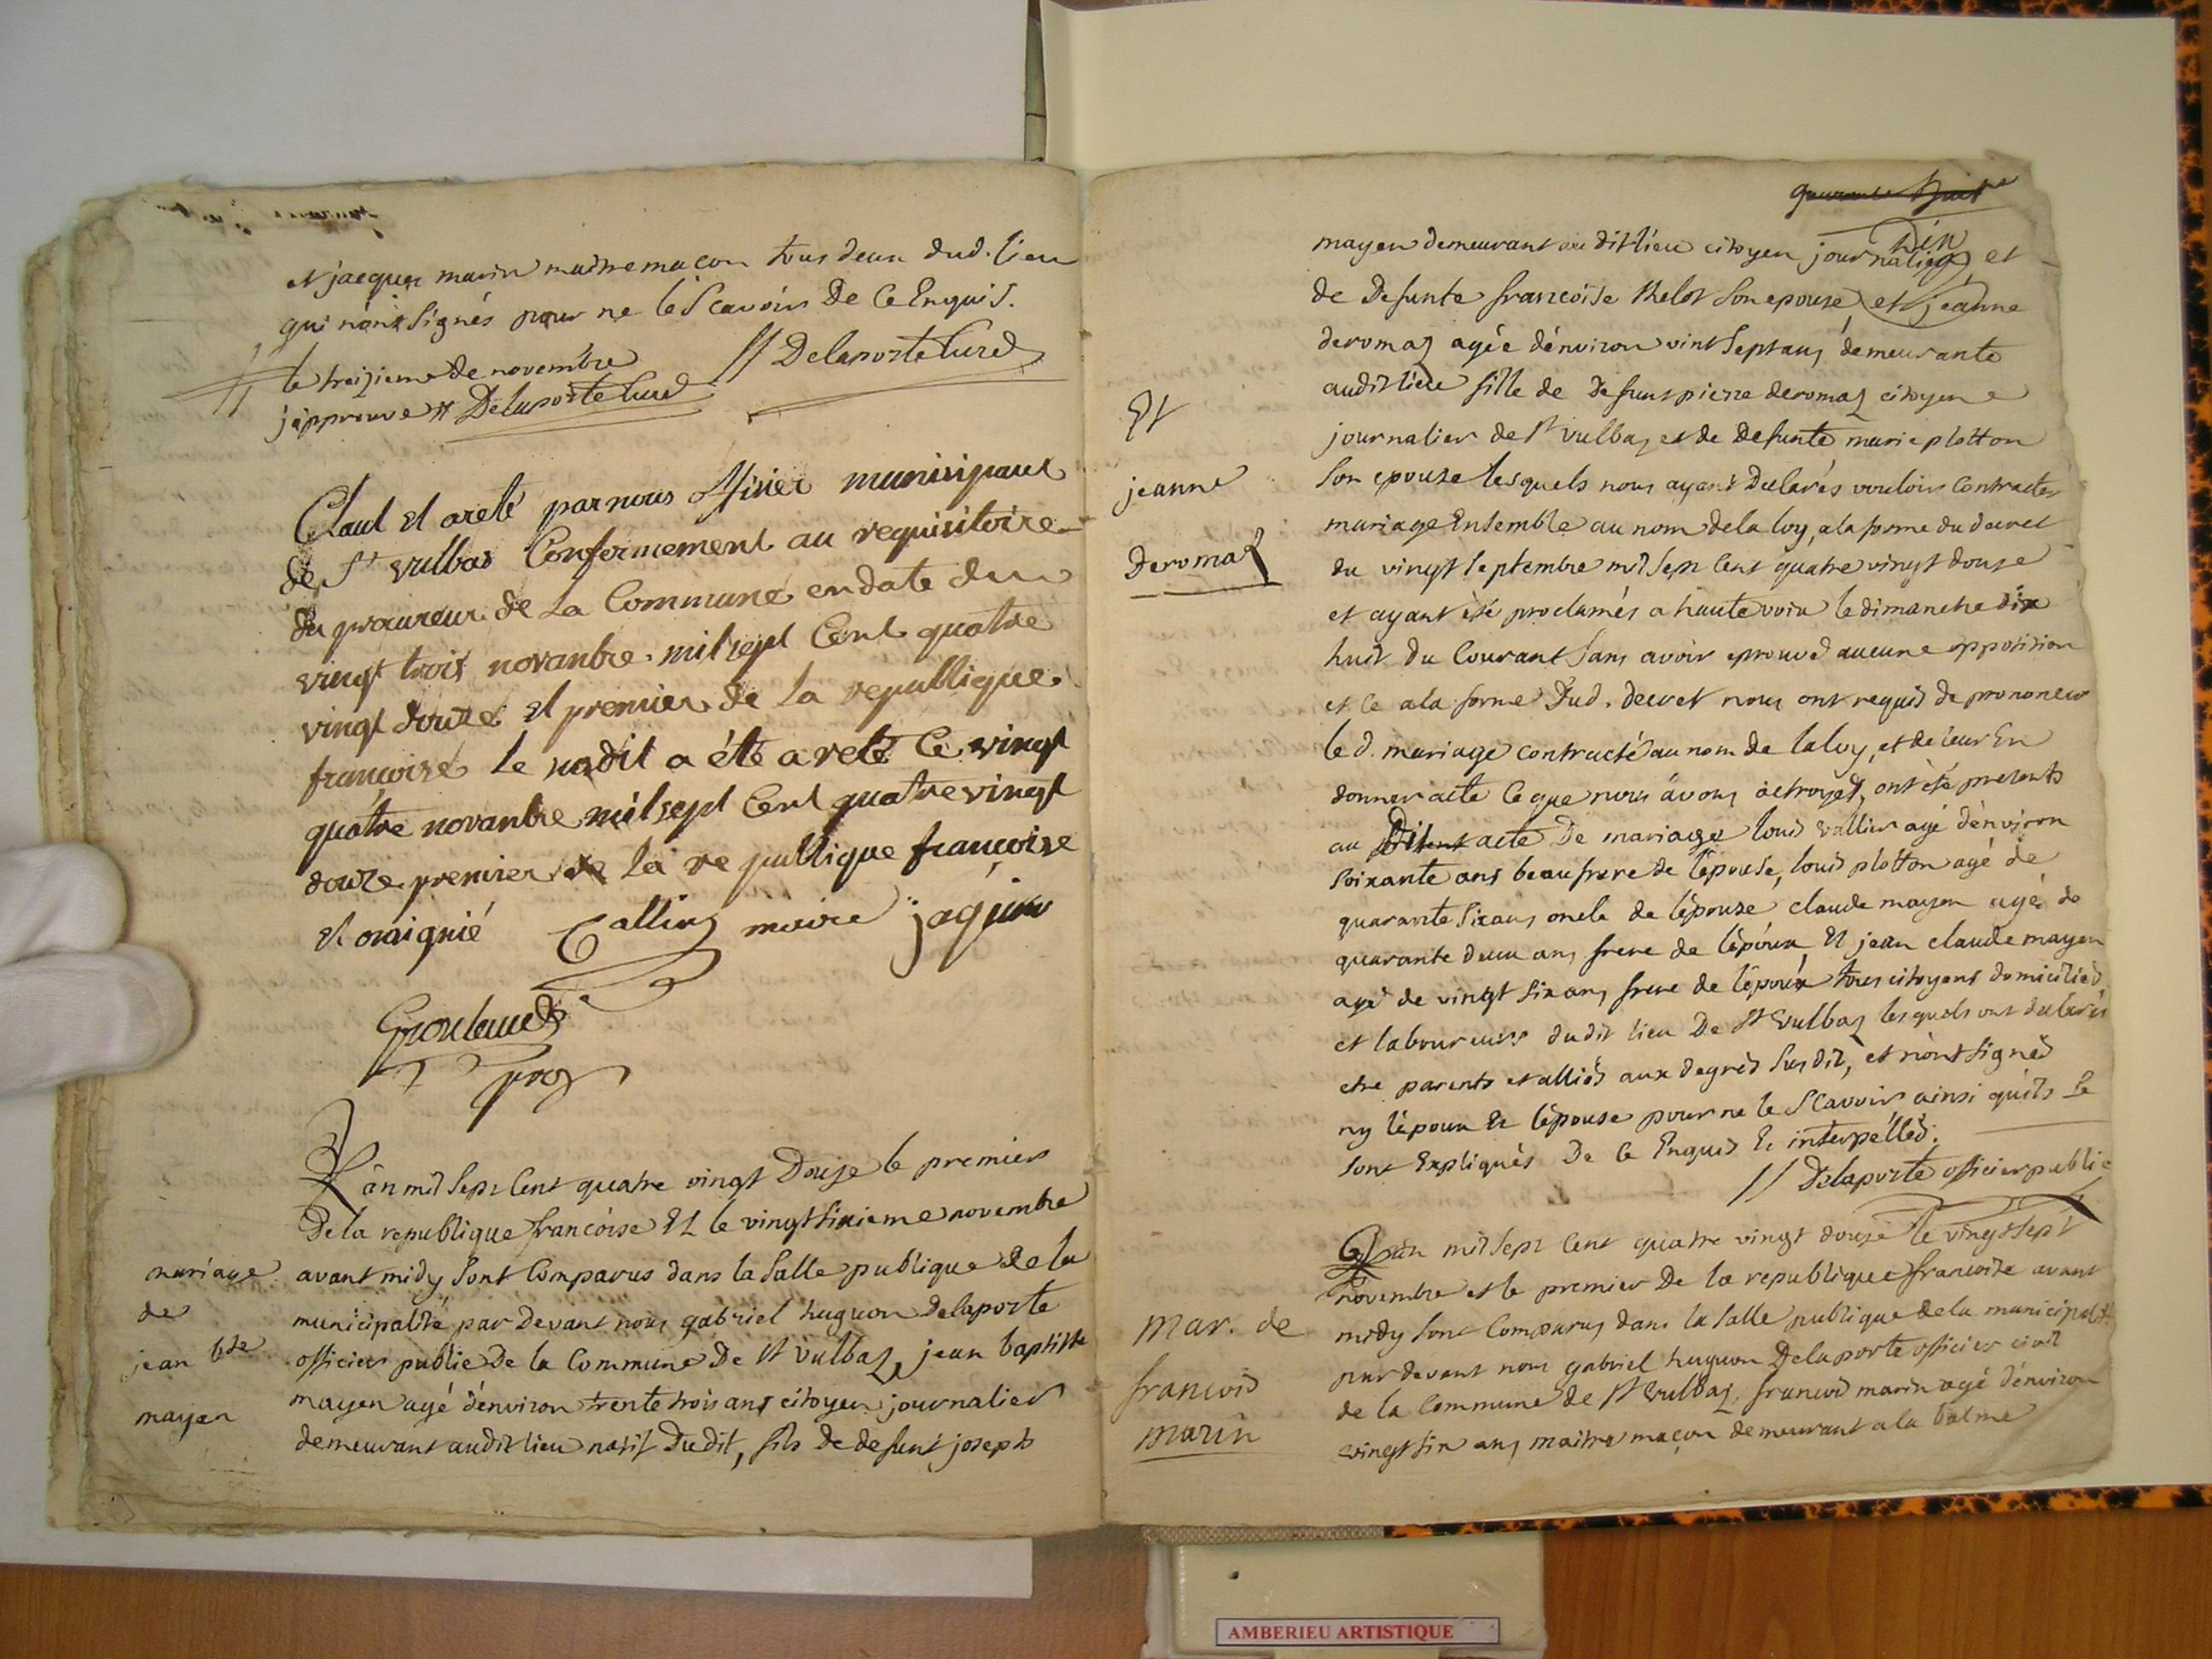 et jacques marin maitre maçon tous deux dud. lieu
qui n'ont signés pour ne le Scavoir De Ce Enquis.
// Delaporte Curé
le treizieme de novembre
j'approuve # Delaporte Curé
Claul et areté par nous Offisier munisipaux
de St vulbas Conformement au requisitoire
du procureur de La Commune en date du
vingt trois novanbre mil sept Cent quatre
vingt douze et premier de la republique
françoize Le            a été areté Ce vingt
quatre novanbre mil sept Cent quatre vingt
douze premier de la republique françoize
et on signié    maire jaquin
proq
mariage
de
jean bte
mayen
L'an mil Sept Cent quatre vingt Douze le premier
De la republique francoise Et le vingt sixieme novembre
avant midy Sont Comparus dans la Salle publique de la
municipalité par Devant nous gabriel huguon Delaporte
officier public De la Commune De St vulbaz, jean baptiste
mayen agé d'environ trente trois ans citoyen journalier
demeurant audit lieu natif Dudit, fils de defunt joseph
quarante huit
dix
mayen demeurant au dit lieu citoyen journalier, et
de Defunte francoise thelot Son epouse, et jeanne
deromaz agée d'environ vint Sept ans demeurante
audit lieu fille de Defunt pierre deromaz citoyen
journalier de St vulbaz et de Defunte marie plotton
Son epouse lesquels nous ayant Declarés vouloir Contracter
mariage Ensemble au nom de la loy, a la forme du decret
du vingt Septembre mil Sept Cent quatre vingt douze
et ayant été proclamés a haute voix le dimanche dix
huit du Courant Sans avoir eprouvé aucune opposition
et Ce a la forme Dud. decret nous ont requis de prononcer
le d. mariage contracté au nom de la loy, et de leur En
donner acte Ce que nous avons octroyés, ont été presents
au Dit acte De mariage louis vallier agé d'environ
Soixante ans beaufrere de l'epouse, louis plotton agé de
quarante Six ans oncle de l'epouse claude mayen agé de
quarante deux ans frere de l'epoux Et jean claude mayen
agé de vingt Six ans frere de l'epoux tous citoyens domiciliés
et laboureurs dudit lieu De St vulbaz lesquels ont declarés
etre parents et alliés aux degrés Sus dit, et n'ont signés
ny l'epoux Et l'epouse pour ne le Scavoir ainsi qu'ils Se
Sont Expliqués De Ce Enquis Et interpellés.
// Delaporte officier public
Et
jeanne
Deromaz
mar. de
francois
marin
L'an mil Sept Cent quatre vingt douze le vingt sept
novembre et le premier De la republique francoise avant
midy Sont Comparus dans la Salle publique de la municipalité
par devant nous gabriel huguon Delaporte officier civil
de la Commune de St vulbaz, francois marin agé d'environ
vingt six ans maitre maçon demeurant a la balme
AMBERIEU ARTISTIQUE